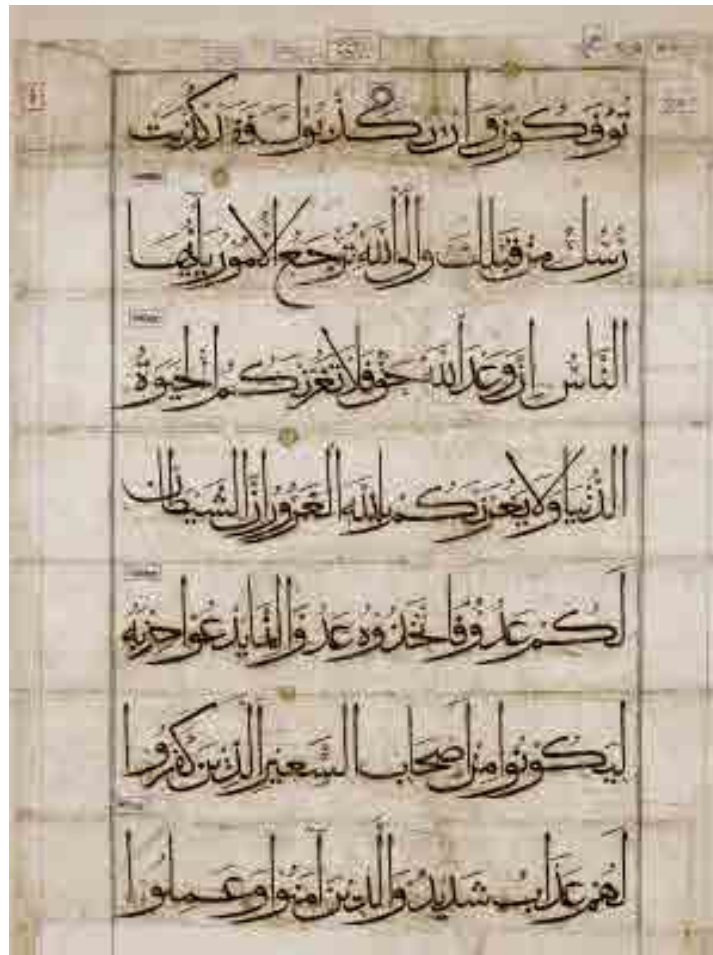 تُؤْفَكُونَ وَإِنْ يُكَذِّبُوكَ فَقَدْ كُذِّبَتْ
رُسُلٌ مِنْ قَبْلِكَ وَإِلَى اللَّهِ تُرْجَعُ الْأُمُورُ يَا أَيُّهَا
النَّاسُ إِنَّ وَعْدَ اللَّهِ حَقٌّ فَلَا تَغُرَّنَّكُمُ الْحَيَوةُ
الدُّنْيَا وَلَا يَغُرَّنَّكُمْ بِاللَّهِ الْغَرُورُ إِنَّ الشَّيْطَانَ
لَكُمْ عَدُوٌّ فَاتَّخِذُوهُ عَدُوًّا إِنَّمَا يَدْعُوا حِزْبَهُ
لِيَكُونُوا مِنْ أَصْحَابِ السَّعِيرِ الَّذِينَ كَفَرُوا
لَهُمْ عَذَابٌ شَدِيدٌ وَالَّذِينَ آمَنُوا وَعَمِلُوا